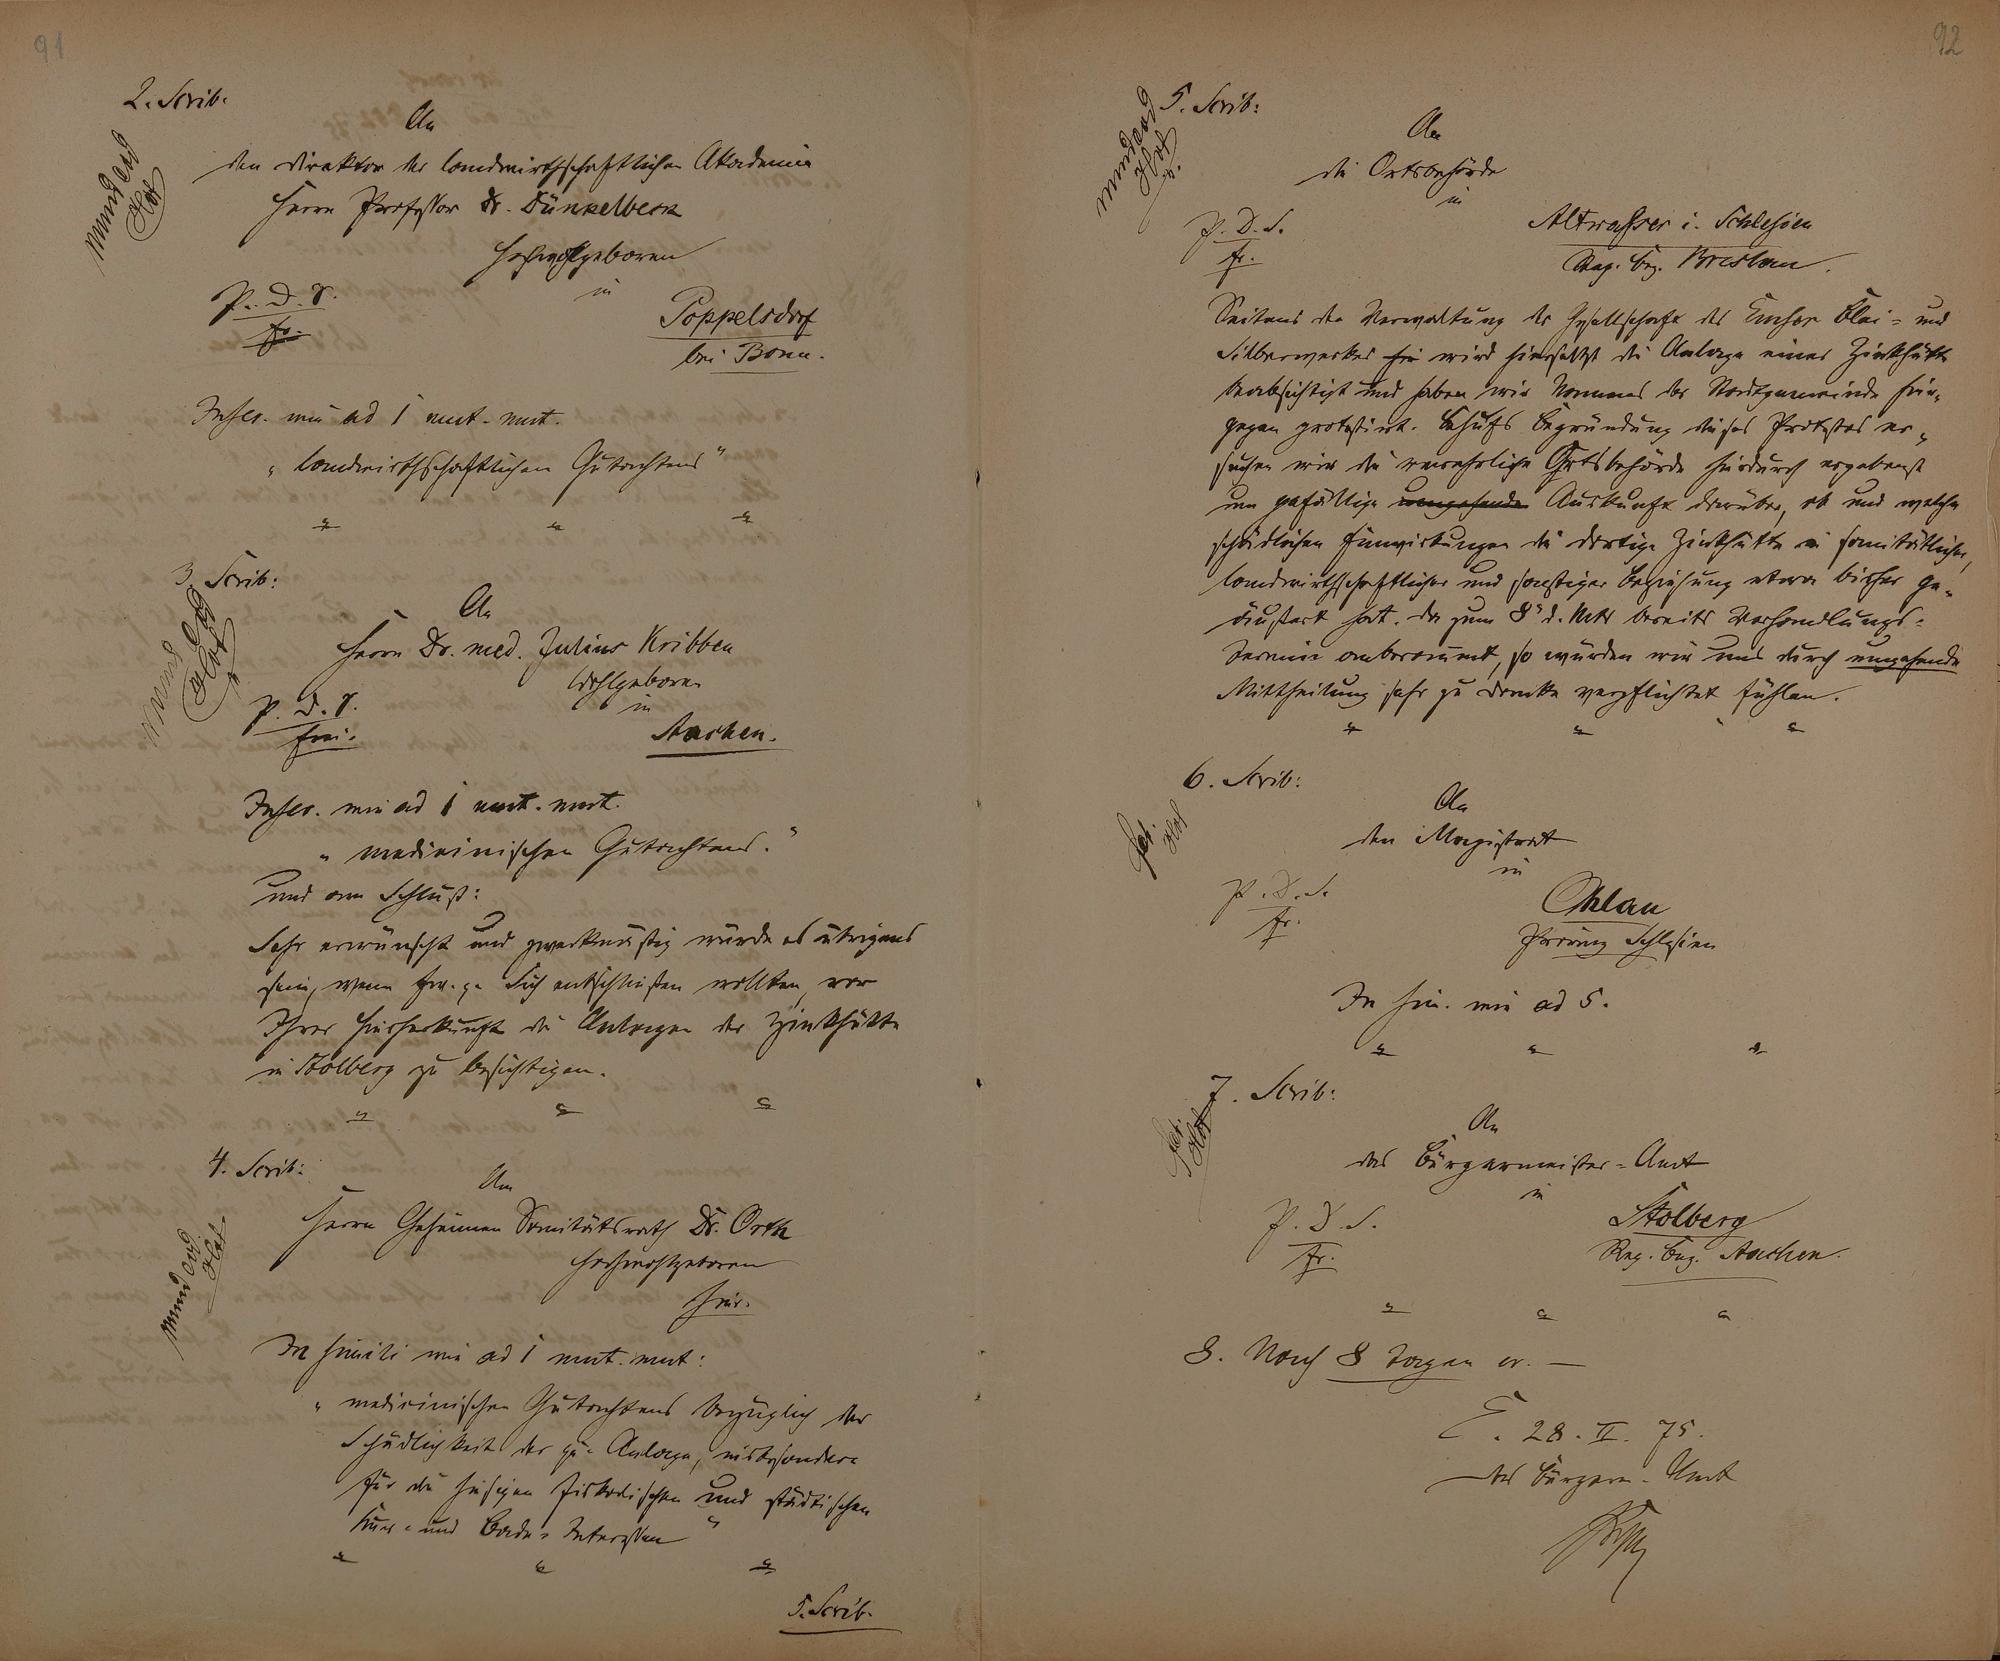 91
2. Scrib:
mund eod
An
den Direktor der landwirthschaftlichen Akademie
Herrn Professor Dr. Dünkelberg
Hochwohlgeboren
in
P. D. S.
fr.
Poppelsdorf
bei Bonn.
Inser. wie ad 1 mut. mut.
„ landwirthschaftlichen Gutachtens "
" " "
3. Scrib:
mund eod
An
Herrn Dr. med. Julius Kribben
Wohlgeboren
in
P. D. S.
frei.
Aachen.
Inser. wie ad 1 mut. mut.
„ medicinischen Gutachtens. "
und am Schluß:
Sehr erwünscht und zweckmäßig würde es übrigens
sein, wenn Ew. p. Sich entschließen wollten, vor
Ihrer Hierherkunft die Anlagen der Zinkhütte
in Stolberg zu besichtigen.
" " "
4. Scrib:
mund eod
An
Herrn Geheimen Sanitätsrath Dr. Orth
Hochwohlgeboren
hier.
In simili wie ad 1 mut. mut:
„ medicinischen Gutachtens bezüglich der
Schädlichkeit der qu. Anlage, insbesondere
für die hiesigen fiskalischen und städtischen
Kur- und Bade-Interessen "
" " "
5. Scrib.
92
5. Scrib:
mund eod
An
die Ortsbehörde
in
P. D. S.
fr.
Altwasser i. Schlesien
Reg. Bez. Breslau.
Seitens der Verwaltung der Gesellschaft des Emser Blei- und
Silberwerkes hie wird hierselbst die Anlage einer Zinkhütte
beabsichtigt und haben wir Namens der Stadtgemeinde hier-
gegen protestirt. Behufs Begründung dieses Protestes er-
suchen wir die verehrliche Ortsbehörde hierdurch ergebenst
um gefällige umgehende Auskunft darüber, ob und welche
schädlichen Einwirkungen die dortige Zinkhütte in sanitätlicher,
landwirthschaftlicher und sonstiger Beziehung etwa bisher ge-
äußert hat. Da zum 8" d. Mts bereits Verhandlungs-
termin anberaumt, so würden wir uns durch umgehende
Mittheilung sehr zu Danke verpflichtet fühlen.
" " "
6. Scrib:
An
den Magistrat
in
P. D. S.
fr.
Ohlau
Provinz Schlesien
In sim. wie ad 5.
" " "
7. Scrib:
An
das Bürgermeister-Amt
in
P. D. S.
fr.
Stolberg
Reg. Bez. Aachen.
" " "
8. Nach 8 Tagen er. —
E. 28. II. 75.
Das Bürgerm.-Amt